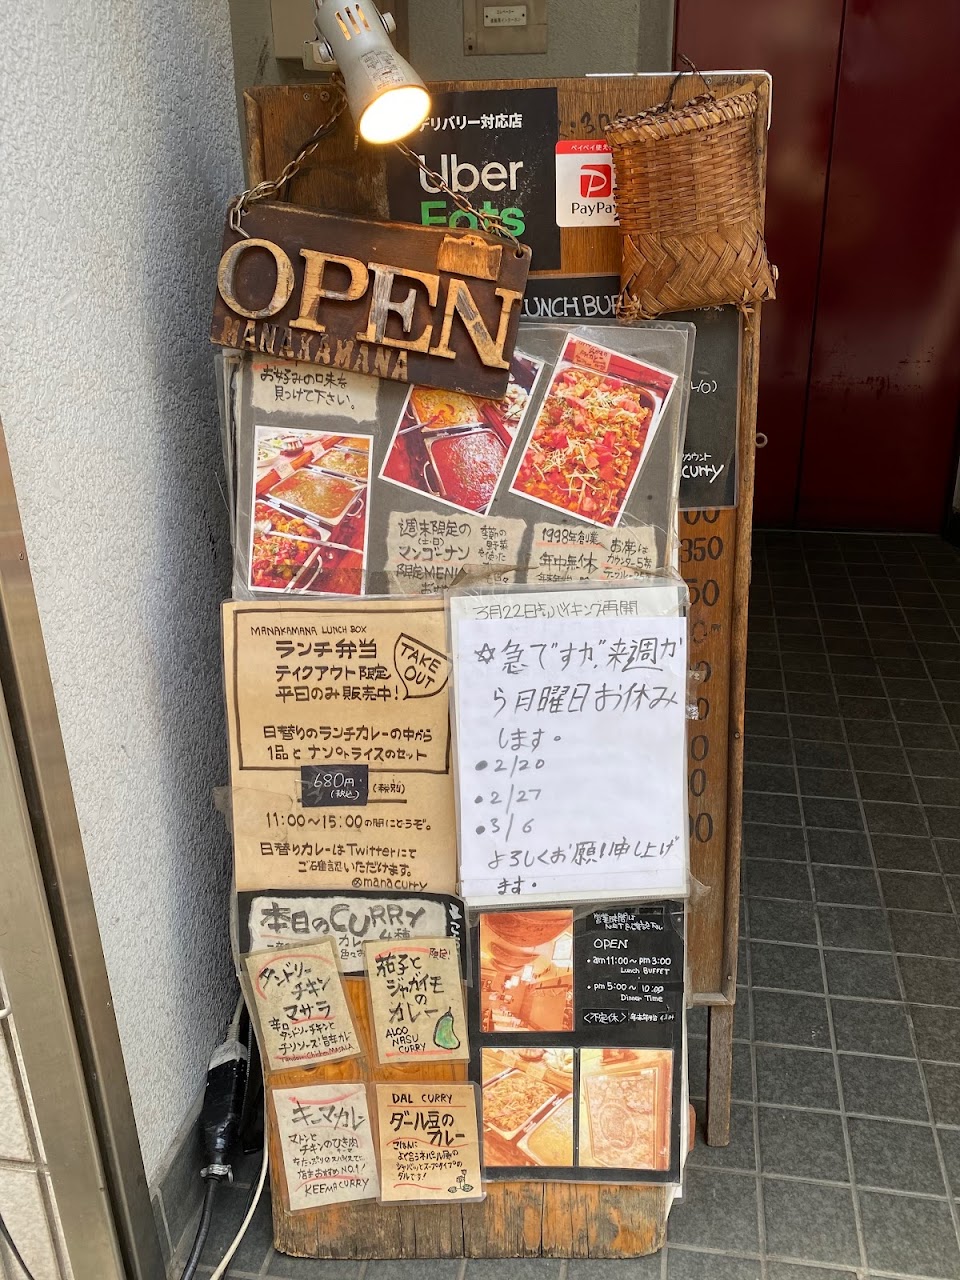 デリバリー対応店
Uber
Eats
PayPay
OPEN
MANAKAMANA
LUNCH BUF
お好みの口味を
見つけて下さい。
curry
週末限定の
(土・日)
マンゴーナン
限定MENU
季節の
野菜
を使った
1998年創業
年中無休
お席は
カウンター5席
350
3月22日からバイキング再開
☆急ですが、来週か
ら月曜日お休み
します。
●2/20
●2/27
●3/6
よろしくお願い申し上げ
ます。
MANAKAMANA LUNCH BOX
ランチ弁当
テイクアウト限定
平日のみ販売中!
TAKE
OUT
日替りのランチカレーの中から
1品とナンorライスのセット
680円
(税込)
(税別)
11:00〜15:00の間にどうぞ。
日替りカレーはTwitterにて
ご確認いただけます。
@manacurry
本日のCURRY
カレー
4種
タンドリー
チキン
マサラ
辛口
タンドリーチキンと
チリソース:旨辛カレー
Tandoori Chicken MASALA
限定!
茄子と
ジャガイモ
の
カレー
ALOO
NASU
CURRY
キーマカレー
マトンと
チキンのひき肉
をたっぷりのスパイスで
店主おすすめNO.1!
KEEMA CURRY
DAL CURRY
ダール豆の
カレー
ごはんに
よく合うネパール風の
シャバッとスープタイプの
ダルです!
営業時間は
OPEN
・am11:00〜pm3:00
Lunch BUFFET
・pm5:00〜10:00
Dinner Time
<不定休>